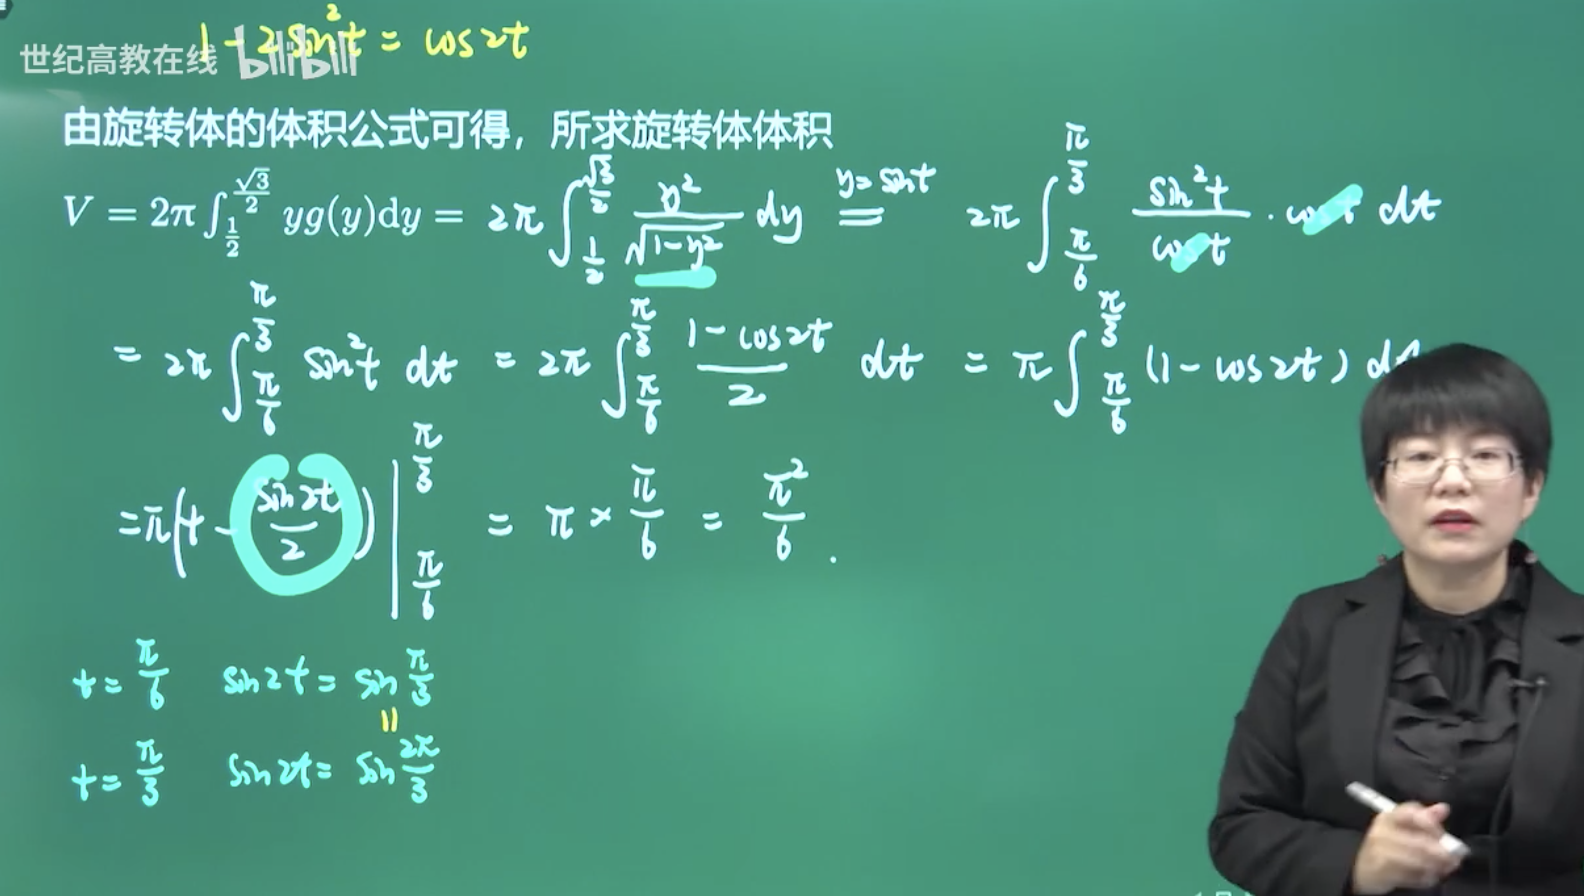 1 - 2sin²t = cos2t
世纪高教在线 bilibili
由旋转体的体积公式可得，所求旋转体体积
V = 2π ∫_{1/2}^{√3/2} yg(y)dy = 2π ∫_{1/2}^{√3/2} y²/√(1-y²) dy \overset{y=sint}{=} 2π ∫_{π/6}^{π/3} sin²t/cost · cost dt
= 2π ∫_{π/6}^{π/3} sin²t dt = 2π ∫_{π/6}^{π/3} (1-cos2t)/2 dt = π ∫_{π/6}^{π/3} (1-cos2t) d
= π(t - sin2t/2) |_{π/6}^{π/3} = π × π/6 = π²/6 .
t = π/6 sin2t = sin π/3
=
t = π/3 sin2t = sin 2π/3